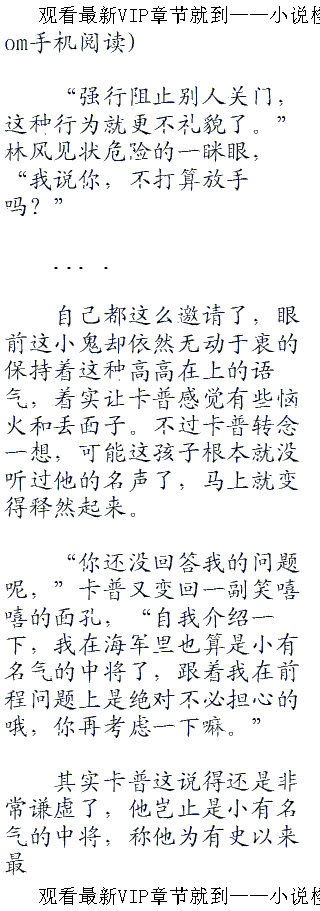 观看最新VIP章节就到——小说
om手机阅读)
“强行阻止别人关门，
这种行为就更不礼貌了。”
林风见状危险的一眯眼，
“我说你，不打算放手
吗？”
....
自己都这么邀请了，眼
前这小鬼却依然无动于衷的
保持着这种高高在上的语
气，着实让卡普感觉有些恼
火和丢面子。不过卡普转念
一想，可能这孩子根本就没
听过他的名声了，马上就变
得释然起来。
“你还没回答我的问题
呢，”卡普又变回一副笑嘻
嘻的面孔，“自我介绍一
下，我在海军里也算是小有
名气的中将了，跟着我在前
程问题上是绝对不必担心的
哦，你再考虑一下嘛。”
其实卡普这说得还是非
常谦虚了，他岂止是小有名
气的中将，称他为有史以来
最
观看最新VIP章节就到——小说